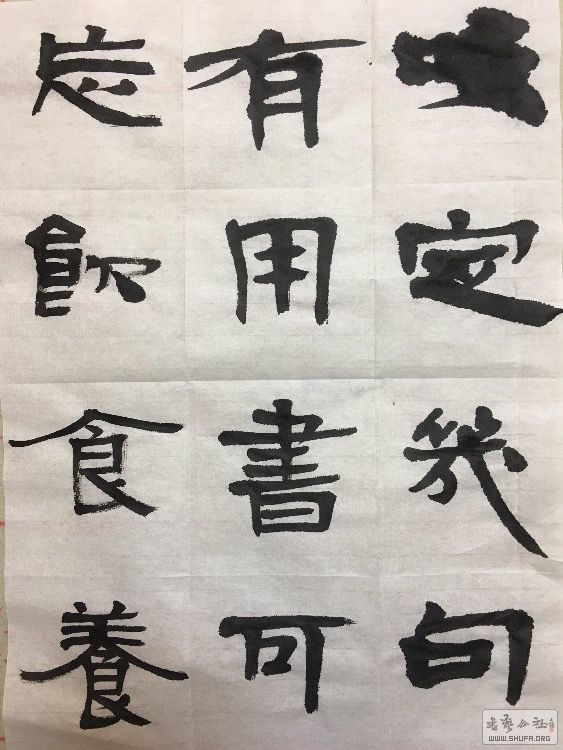 定幾句
有用書可
忘飲食養
书艺公社
WWW.SHUFA.ORG